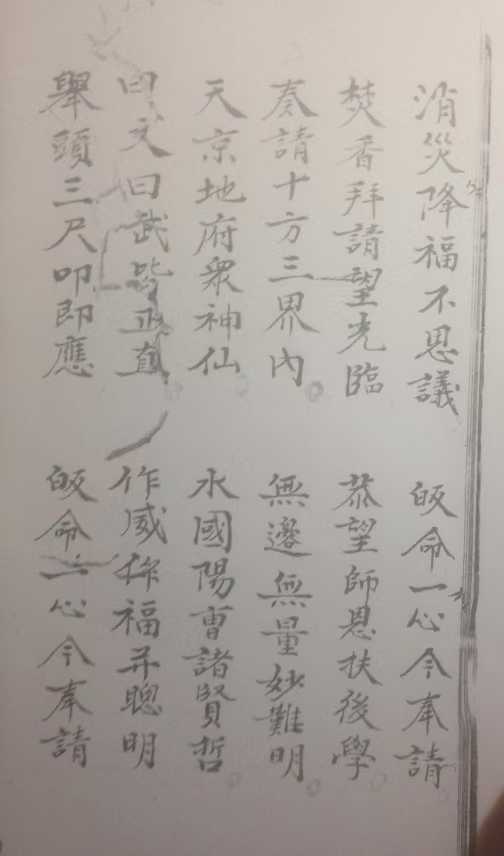 消災降福不思議　皈命一心今奉請
焚香拜請望光臨　恭望師恩扶後學
奏請十方三界內　無邊無量妙難明
天京地府眾神仙　水國陽曹諸賢哲
曰文曰武皆正直　作威作福并聰明
舉頭三尺叩即應　皈命一心今奉請